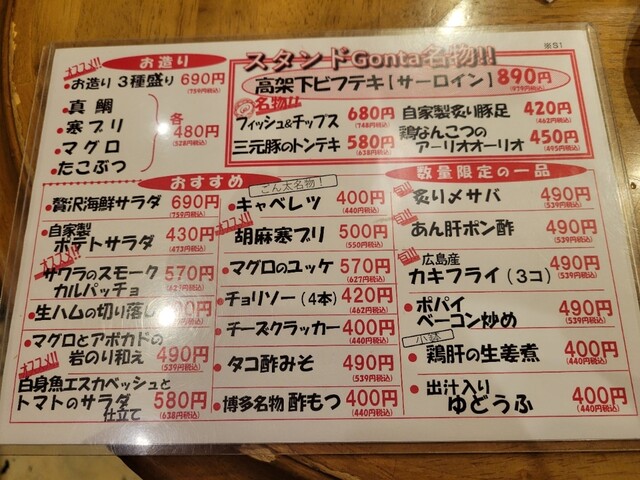 ※S1
オススメ!!
お造り
・お造り 3種盛り 690円
(759円税込)
・真鯛
・寒ブリ
・マグロ
・たこぶつ
各
480円
(528円税込)
スタンドGonta名物!!
高架下ビフテキ[サーロイン] 890円
(979円税込)
名物!!
フィッシュ&チップス 680円
(748円税込)
自家製炙り豚足 420円
(462円税込)
三元豚のトンテキ 580円
(638円税込)
鶏なんこつの
アーリオオーリオ 450円
(495円税込)
おすすめ
・贅沢海鮮サラダ 690円
(759円税込)
・自家製
ポテトサラダ 430円
(473円税込)
オススメ!!
・サワラのスモーク
カルパッチョ 570円
(627円税込)
・生ハムの切り落し
・マグロとアボカドの
岩のり和え 490円
(539円税込)
オススメ!!
・白身魚エスカベッシュと
トマトのサラダ
仕立て 580円
(638円税込)
ごん太名物!
・キャベレツ 400円
(440円税込)
・胡麻寒ブリ 500円
(550円税込)
・マグロのユッケ 570円
(627円税込)
・チョリソー(4本) 420円
(462円税込)
・チーズクラッカー 400円
(440円税込)
・タコ酢みそ 490円
(539円税込)
・博多名物 酢もつ 400円
(440円税込)
数量限定の一品
・炙りメサバ 490円
(539円税込)
・あん肝ポン酢 490円
(539円税込)
・広島産
カキフライ(3コ) 490円
(539円税込)
・ポパイ
ベーコン炒め 490円
(539円税込)
小鉢
・鶏肝の生姜煮 400円
(440円税込)
・出汁入り
ゆどうふ 400円
(440円税込)